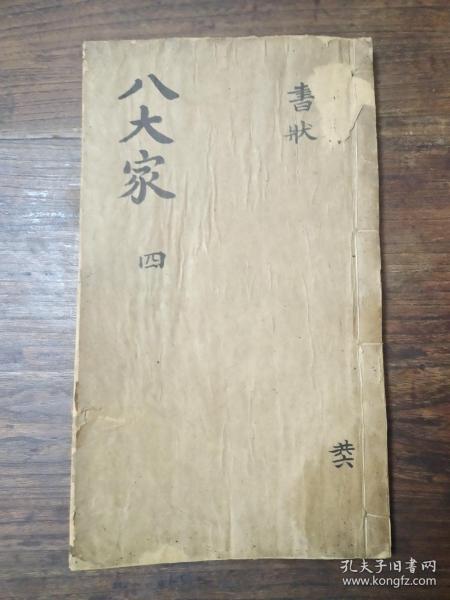 書狀
共六
八大家
四
孔夫子旧书网
www.kongfz.com